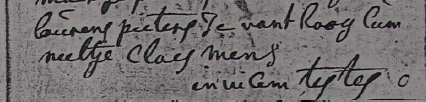 laurens pieters Je vant Rooy Cum
neeltje Claes mens
invicem testes o